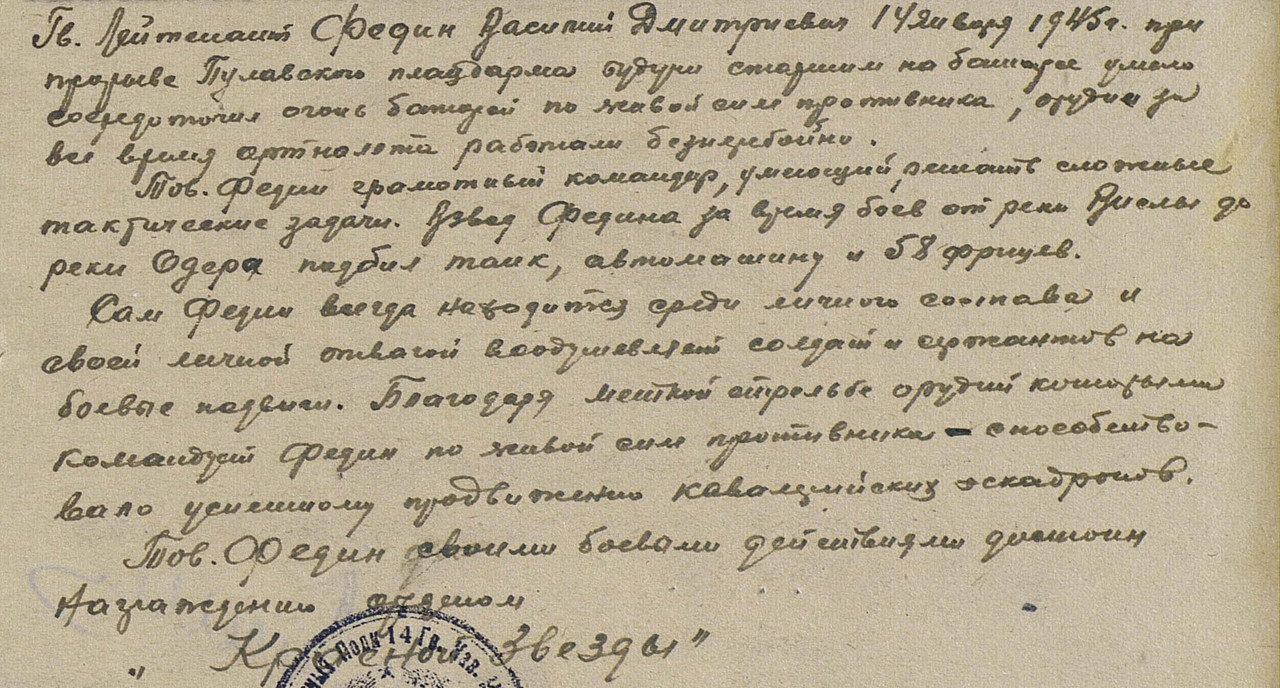 Гв. Лейтенант Федин Василий Дмитриевич 14 января 1945г. при
прорыве Пулавского плацдарма будучи старшим на батарее умело
сосредоточил огонь батарей по живой силе противника, орудия за
все время артналета работали безперебойно.
Тов. Федин грамотный командир, умеющий решать сложные
тактические задачи. Взвод Федина за время боев от реки Вислы до
реки Одера подбил танк, автомашину и 58 фрицев.
Сам Федин всегда находится среди личного состава и
своей личной отвагой воодушевляет солдат и сержантов на
боевые подвиги. Благодаря меткой стрельбе орудий которыми
командует Федин по живой силе противника - способство-
вало успешному продвижению кавалерийских эскадронов.
Тов. Федин своими боевыми действиями достоин
награждению орденом
„Красной Звезды"
Полк 14 Гв. Кав.